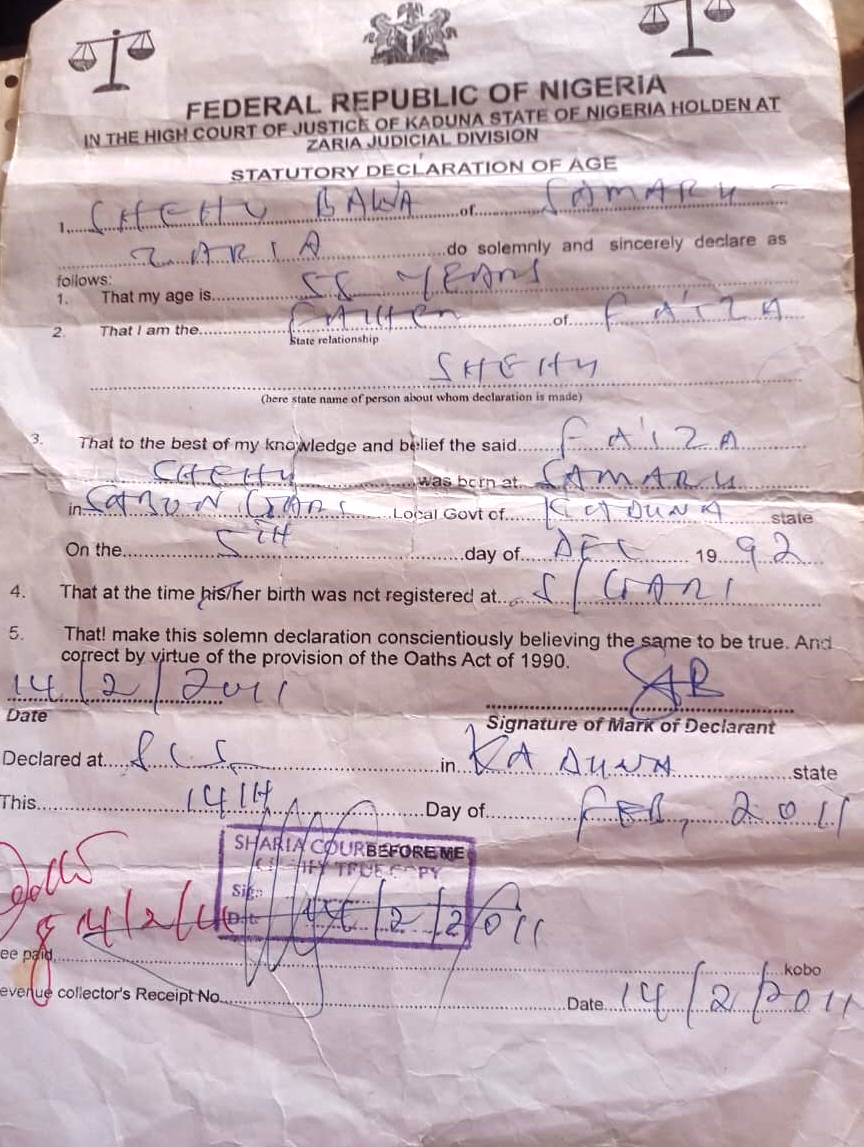 FEDERAL REPUBLIC OF NIGERIA
IN THE HIGH COURT OF JUSTICE OF KADUNA STATE OF NIGERIA HOLDEN AT
ZARIA JUDICIAL DIVISION
STATUTORY DECLARATION OF AGE
1,.....SHEHU BAWA.....of.....SAMARU.....
.....ZARIA.....do solemnly and sincerely declare as
follows:
1. That my age is.....55 YEARS
2. That I am the.....Father.....of.....FA'IZA
State relationship
SHEHU
(here state name of person about whom declaration is made)
3. That to the best of my knowledge and belief the said.....FA'IZA
.....SHEHU.....was born at SAMARU
in SABON GARI.....Local Govt of.....KADUNA state
On the.....5TH.....day of.....DEC.....19..92...
4. That at the time his/her birth was not registered at.....S/GARI
5. That! make this solemn declaration conscientiously believing the same to be true. And
correct by virtue of the provision of the Oaths Act of 1990.
14/2/2011
Date
Signature of Mark of Declarant
Declared at.....in.....KADUNA.....state
This.....14TH.....Day of.....FEB, 2011
SHARIA COUR BEFORE ME
TRUE COPY
Sig:
14/2/2011
14/2/11
ee paid.....kobo
evenue collector's Receipt No.....Date 14/2/2011